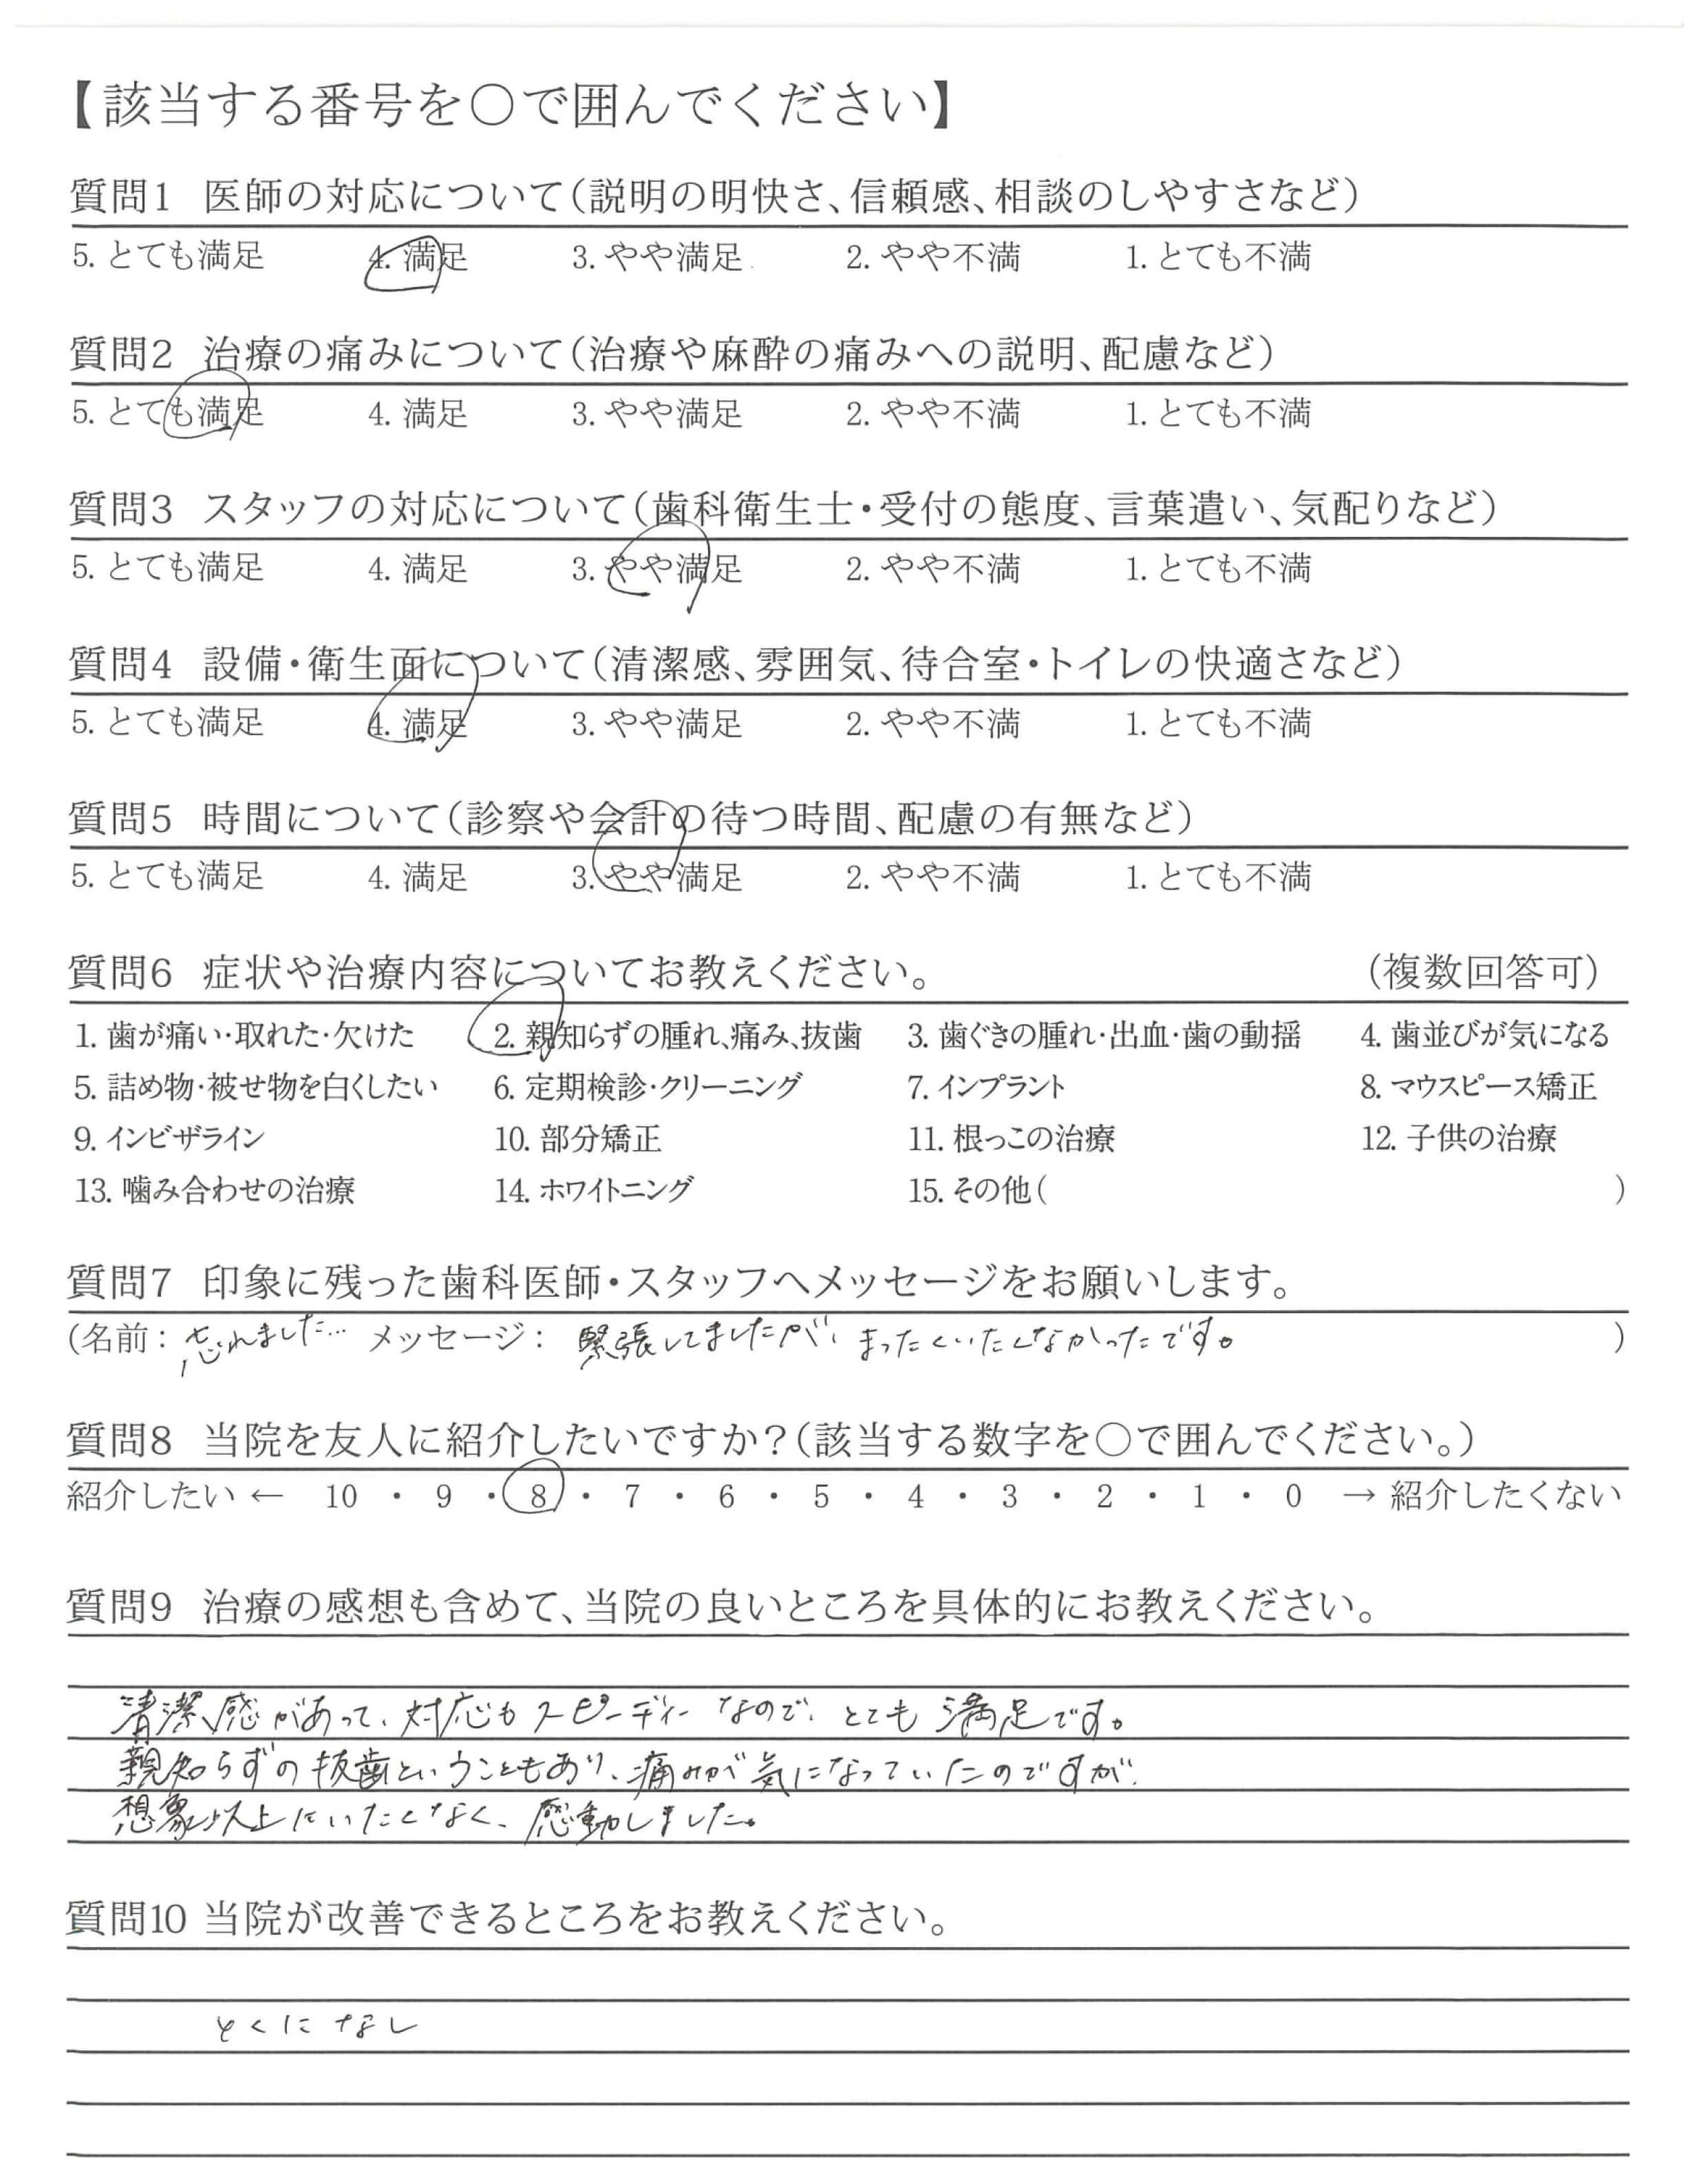 【該当する番号を○で囲んでください】
質問1 医師の対応について(説明の明快さ、信頼感、相談のしやすさなど)
5. とても満足 4. 満足 3. やや満足 2. やや不満 1. とても不満
質問2 治療の痛みについて(治療や麻酔の痛みへの説明、配慮など)
5. とても満足 4. 満足 3. やや満足 2. やや不満 1. とても不満
質問3 スタッフの対応について(歯科衛生士・受付の態度、言葉遣い、気配りなど)
5. とても満足 4. 満足 3. やや満足 2. やや不満 1. とても不満
質問4 設備・衛生面について(清潔感、雰囲気、待合室・トイレの快適さなど)
5. とても満足 4. 満足 3. やや満足 2. やや不満 1. とても不満
質問5 時間について(診察や会計の待つ時間、配慮の有無など)
5. とても満足 4. 満足 3. やや満足 2. やや不満 1. とても不満
質問6 症状や治療内容についてお教えください。 (複数回答可)
1. 歯が痛い・取れた・欠けた 2. 親知らずの腫れ、痛み、抜歯 3. 歯ぐきの腫れ・出血・歯の動揺 4. 歯並びが気になる
5. 詰め物・被せ物を白くしたい 6. 定期検診・クリーニング 7. インプラント 8. マウスピース矯正
9. インビザライン 10. 部分矯正 11. 根っこの治療 12. 子供の治療
13. 噛み合わせの治療 14. ホワイトニング 15. その他( )
質問7 印象に残った歯科医師・スタッフへメッセージをお願いします。
(名前: 忘れました… メッセージ: 緊張してましたが、まったくいたくなかったです。 )
質問8 当院を友人に紹介したいですか?(該当する数字を○で囲んでください。)
紹介したい ← 10 ・ 9 ・ 8 ・ 7 ・ 6 ・ 5 ・ 4 ・ 3 ・ 2 ・ 1 ・ 0 → 紹介したくない
質問9 治療の感想も含めて、当院の良いところを具体的にお教えください。
清潔感があって、対応もスピーディーなので、とても満足です。
親知らずの抜歯ということもあり、痛みが気になっていたのですが、
想象以上にいたくなく、感動しました。
質問10 当院が改善できるところをお教えください。
とくになし